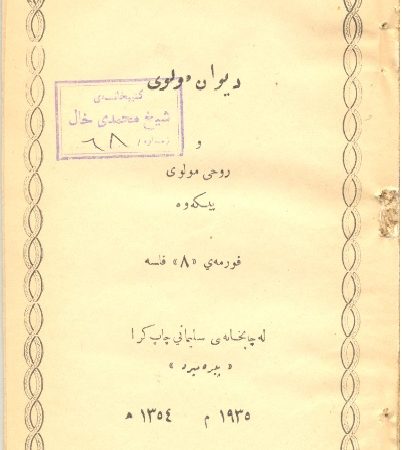 دیوان مولوی
کتێبخانەی
شیخ محمدی خال
ژمارە / ٦٨
و
روحی مولوی
پیکەوە
فورمەی «٨» فلسە
لە چاپخانەی سلیمانی چاپ کرا
«پیرەمیرد»
١٩٣٥ م ١٣٥٤ ھ